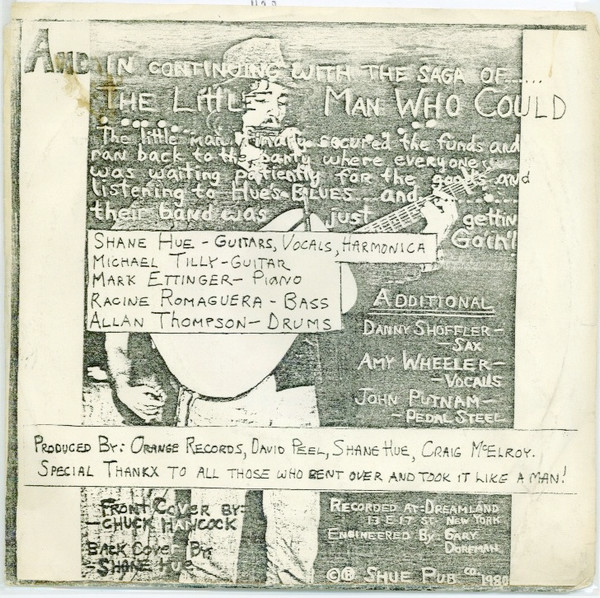 AND IN CONTINUING WITH THE SAGA OF......
THE LITTLE MAN WHO COULD
The little man finally secured the funds and
ran back to the party where everyone
was waiting patiently for the goods and
listening to Hue's BLUES and
their band was just gettin
Goin'!
SHANE HUE - GUITARS, VOCALS, HARMONICA
MICHAEL TILLY - GUITAR
MARK ETTINGER - PIANO
RACINE ROMAGUERA - BASS
ALLAN THOMPSON - DRUMS
ADDITIONAL
DANNY SHOFFLER -
- SAX
AMY WHEELER -
- VOCALS
JOHN PUTNAM -
- PEDAL STEEL
PRODUCED BY: ORANGE RECORDS, DAVID PEEL, SHANE HUE, CRAIG McELROY.
SPECIAL THANKX TO ALL THOSE WHO BENT OVER AND TOOK IT LIKE A MAN!
FRONT COVER BY:
- CHUCK HANCOCK
BACK COVER BY:
- SHANE HUE
RECORDED AT: DREAMLAND
13 E 17 ST. NEW YORK
ENGINEERED BY GARY
DORFMAN
©® SHUE PUB CO. 1980